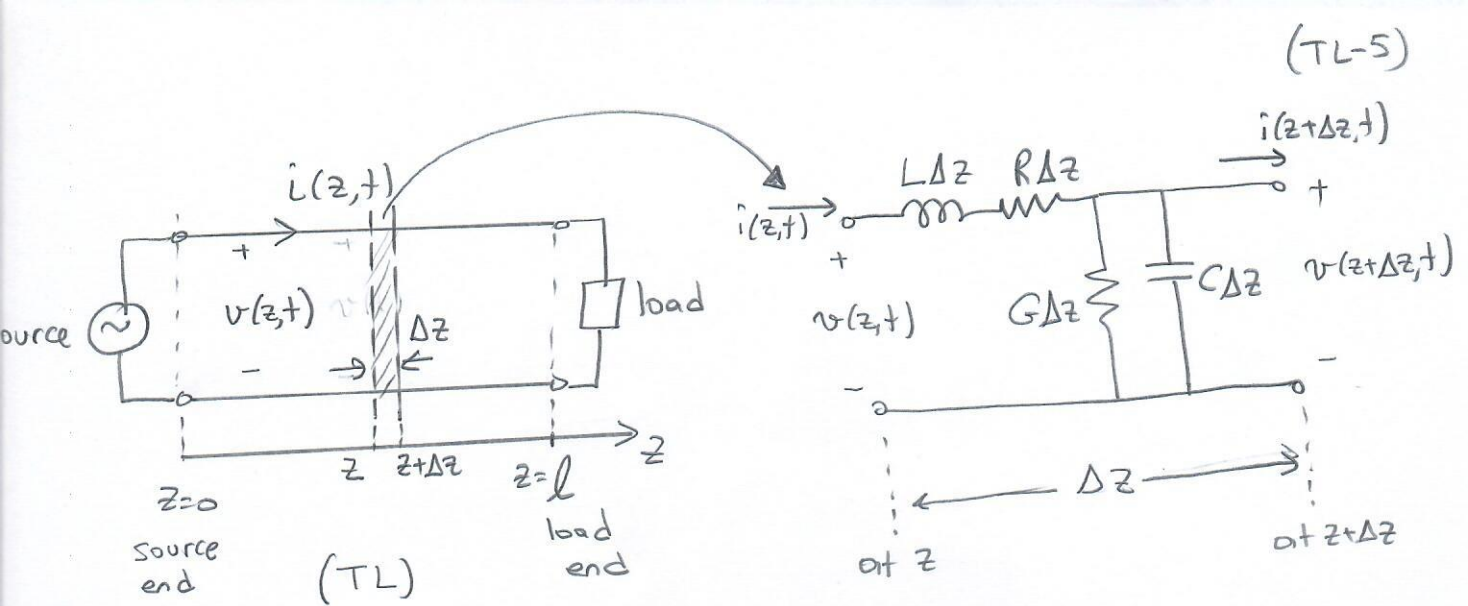 (TL-5)
i(z,t)
+
v(z,t)
-
ource
~
ΔZ
load
z
z+Δz
z=l
Z
z=0
source
end
load
end
(TL)
i(z,t)
LΔZ RΔZ
i(z+Δz,t)
+
v(z,t)
-
GΔZ
CΔZ
+
v(z+Δz,t)
-
ΔZ
at z
at z+Δz